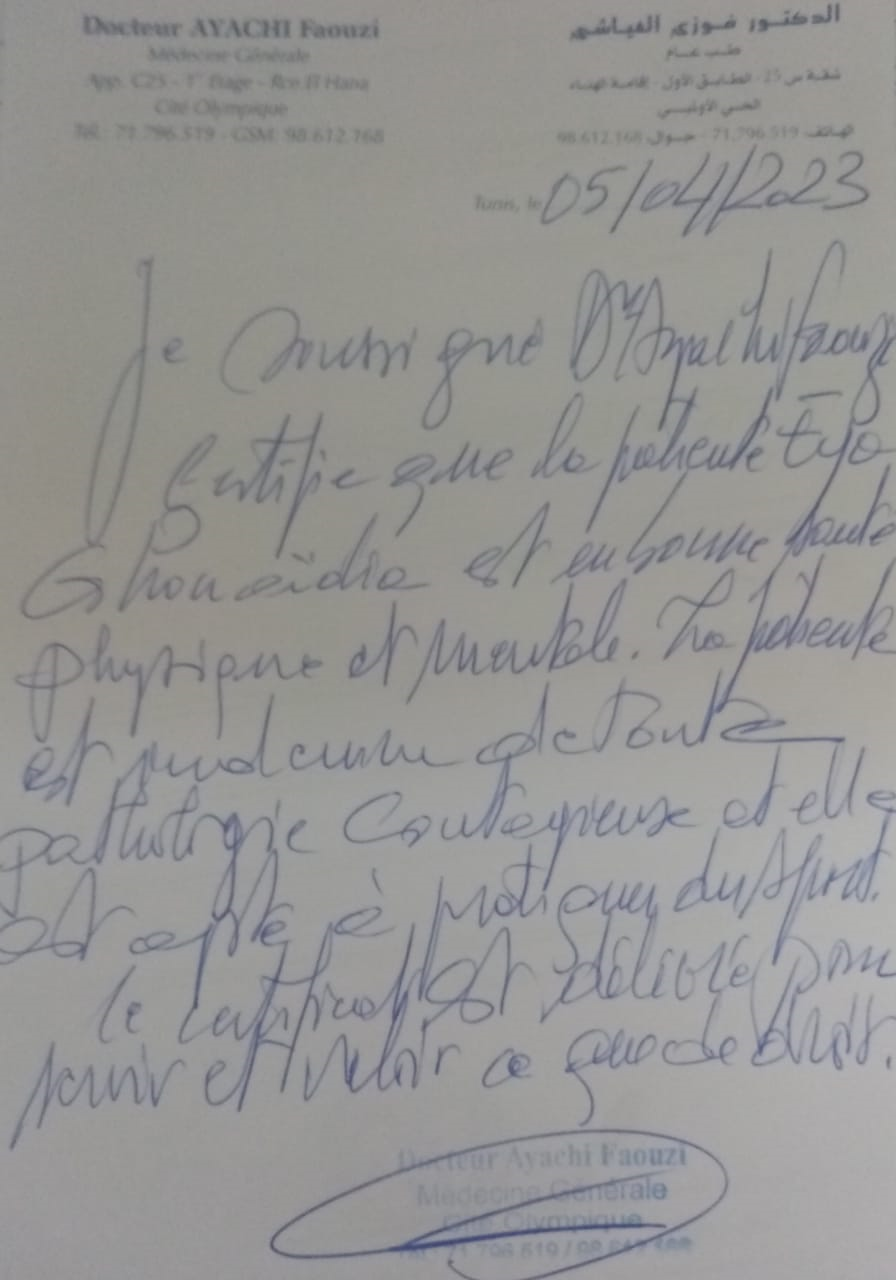 Docteur AYACHI Faouzi
Médecine Générale
App. C25 - 1° Etage - Rce El Hana
Cité Olympique
Tél.: 71.796.519 - GSM: 98.612.168
الدكتور فوزي العياشي
طب عام
شقة س 25 - الطابق الأول - إقامة الهناء
الحي الأولمبي
الهاتف 71.796.519 - جوال 98.612.168
Tunis, le 05/04/2023
Je soussigné Dr Ayachi Faouzi
certifie que la patiente Eya
Ghouaidia est en bonne santé
physique et mentale. La patiente
est indemne de toute
pathologie contagieuse et elle
est apte à pratiquer du sport.
Ce certificat est délivré pour
servir et valoir ce que de droit.
Docteur Ayachi Faouzi
Médecine Générale
Cité Olympique
71 796 519 /